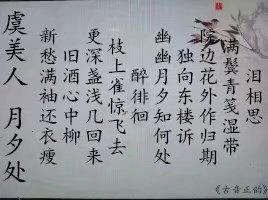 虞美人 月夕处
新愁满袖还衣瘦
旧酒心中柳
更深盏浅几回来
枝上雀惊飞去
醉徘徊
幽幽月夕知何处
独向东楼诉
院边花外作归期
满鬓青笺湿带
泪相思
《古音正韵》